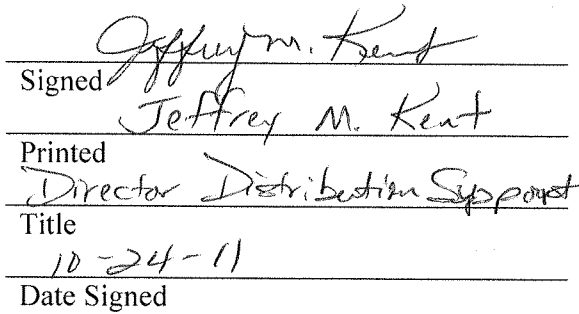 Jeffrey M. Kent
Signed
Jeffrey M. Kent
Printed
Director Distribution Support
Title
10-24-11
Date Signed